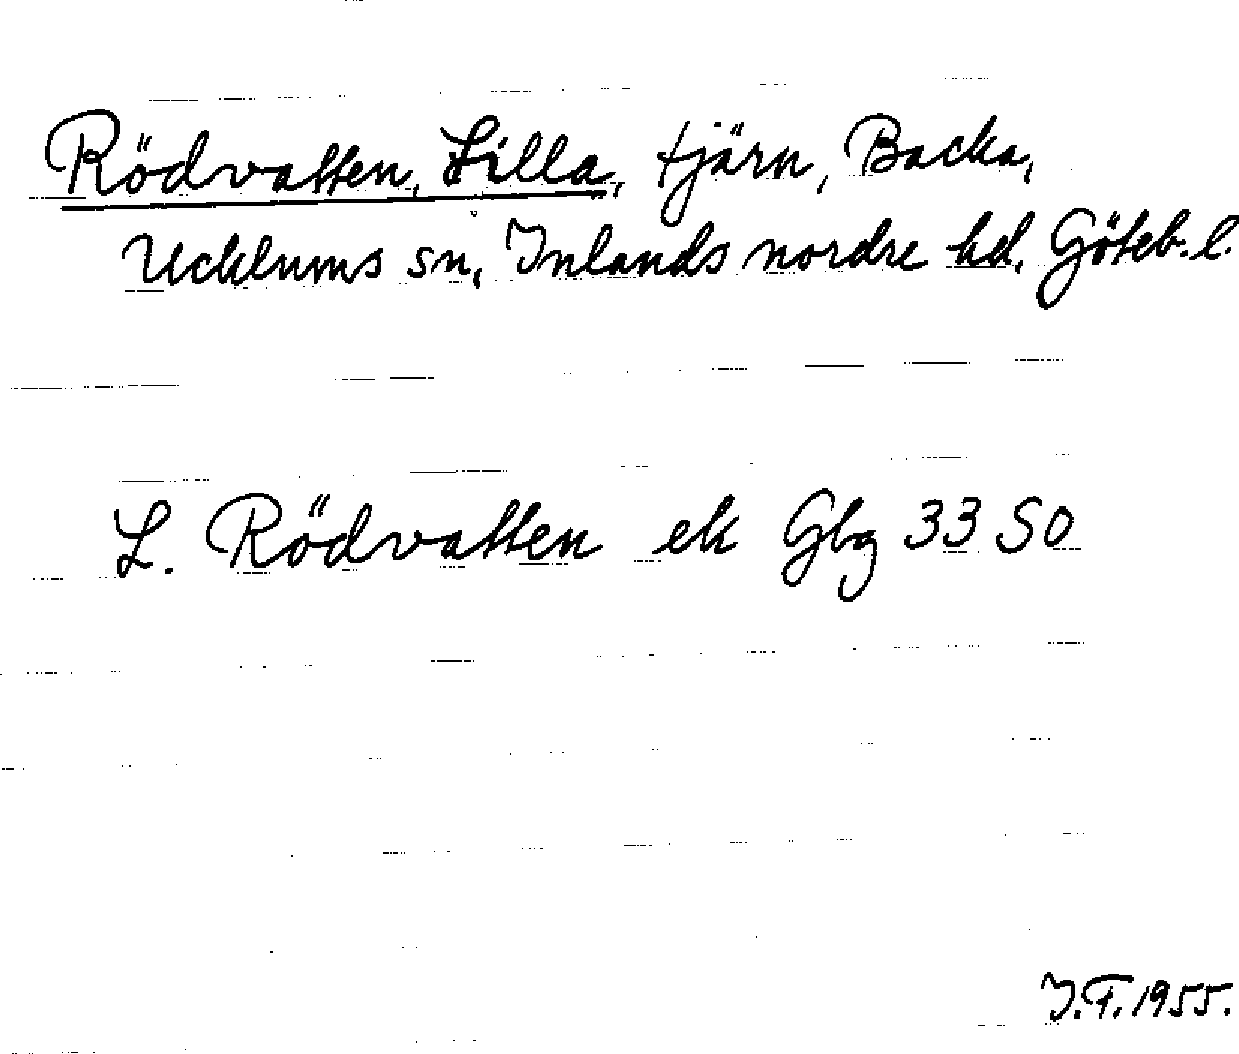 Rödvatten, Lilla, tjärn, Backa,
Ucklums sn, Inlands nordre hd, Göteb. l.
L. Rödvatten ek Gbg 33 SO
I.F. 1955.